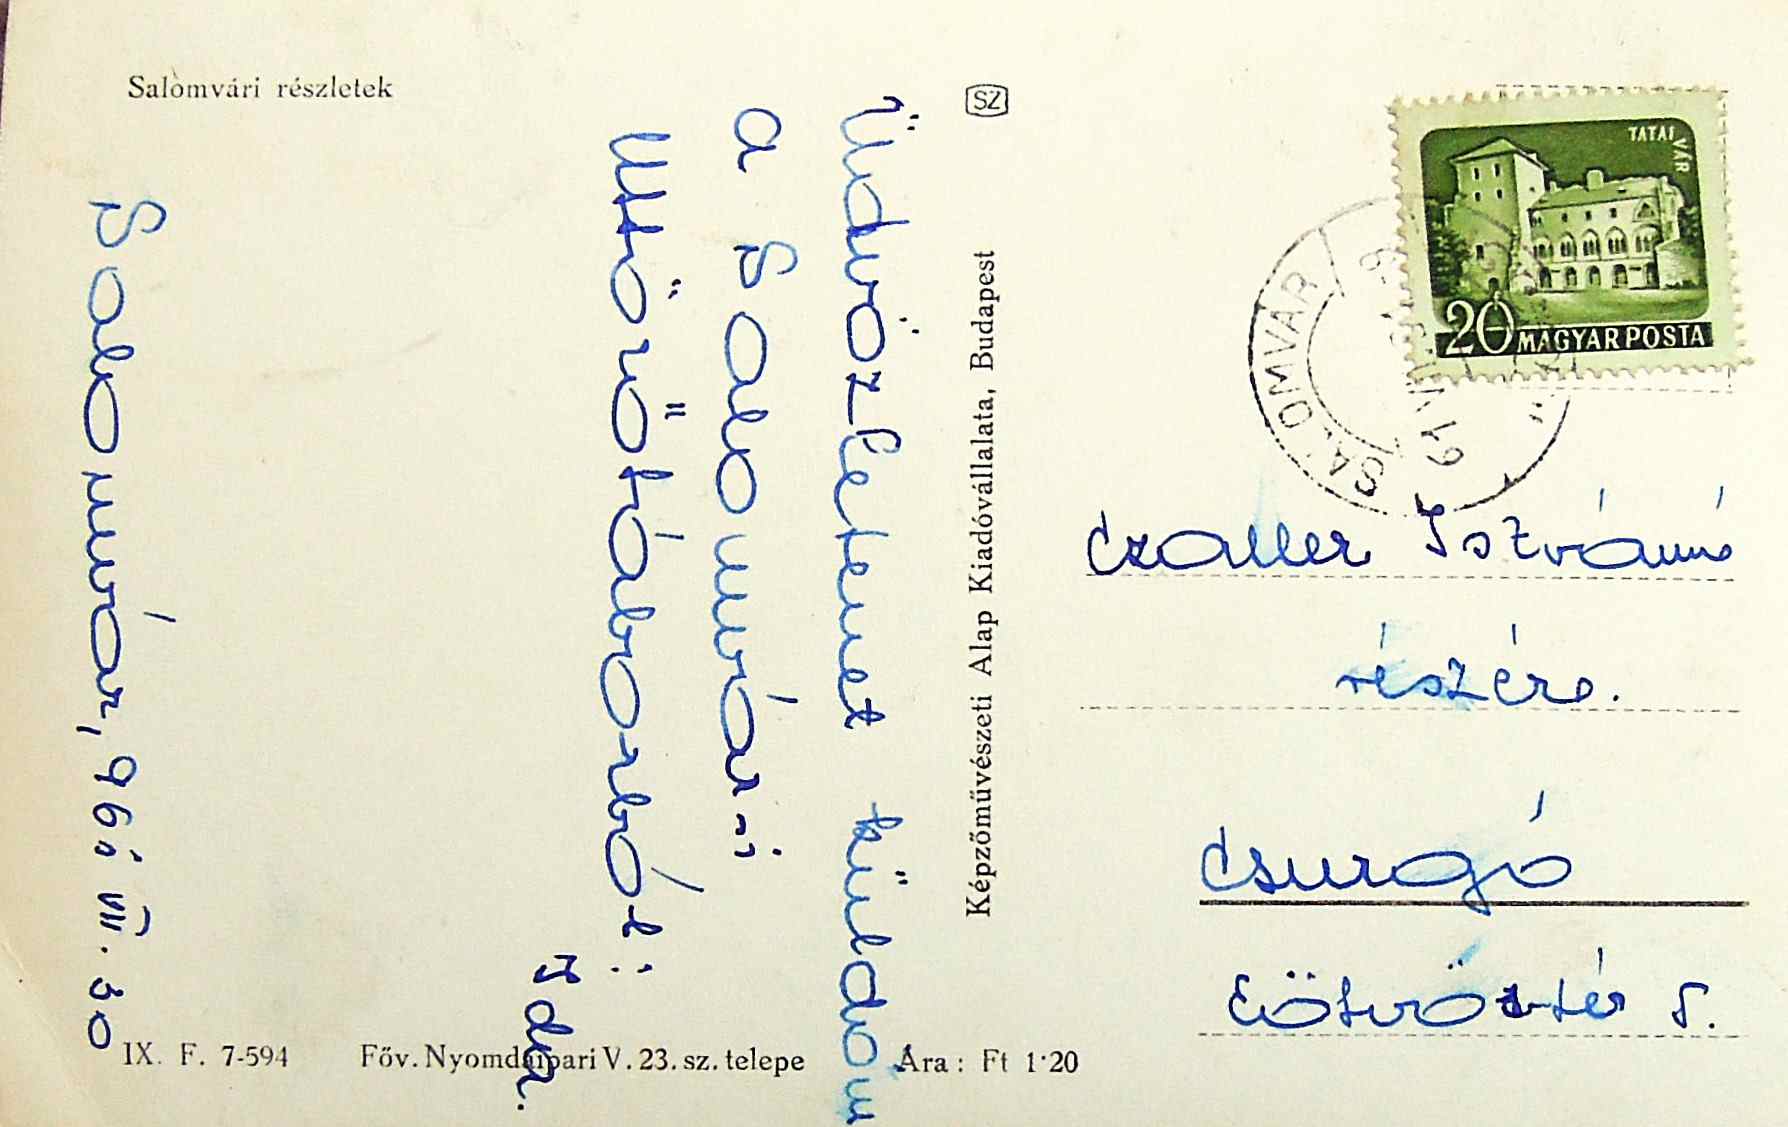 Salomvári részletek
SZ
Üdvözletemet küldöm
a Salomvári
úttörőtáborból:
Ida.
Salomvár, 961 VII. 30
Képzőművészeti Alap Kiadóvállalata, Budapest
TATAI VÁR
20 MAGYAR POSTA
SALOMVÁR
Czaller Istvánné
részére.
Csurgó
Eötvös-tér 5.
IX. F. 7-594 Főv. Nyomdaipari V. 23. sz. telepe Ára : Ft 1·20